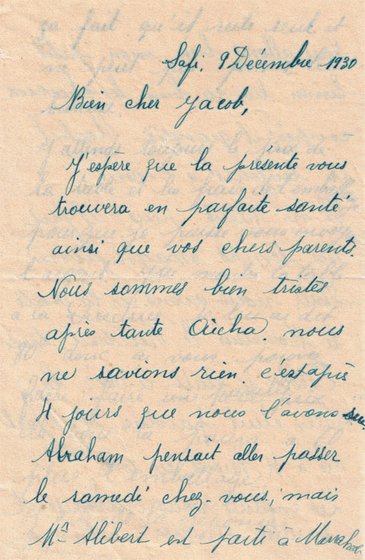 Safi, 9 Décembre 1930
Bien cher Jacob,
J'espère que la présente vous
trouvera en parfaite santé
ainsi que vos chers parents.
Nous sommes bien tristes
après tante Aïcha. nous
ne savions rien. c'est après
4 jours que nous l'avons su.
Abraham pensait aller passer
le samedi chez-vous, mais
Mr Alibert est parti à